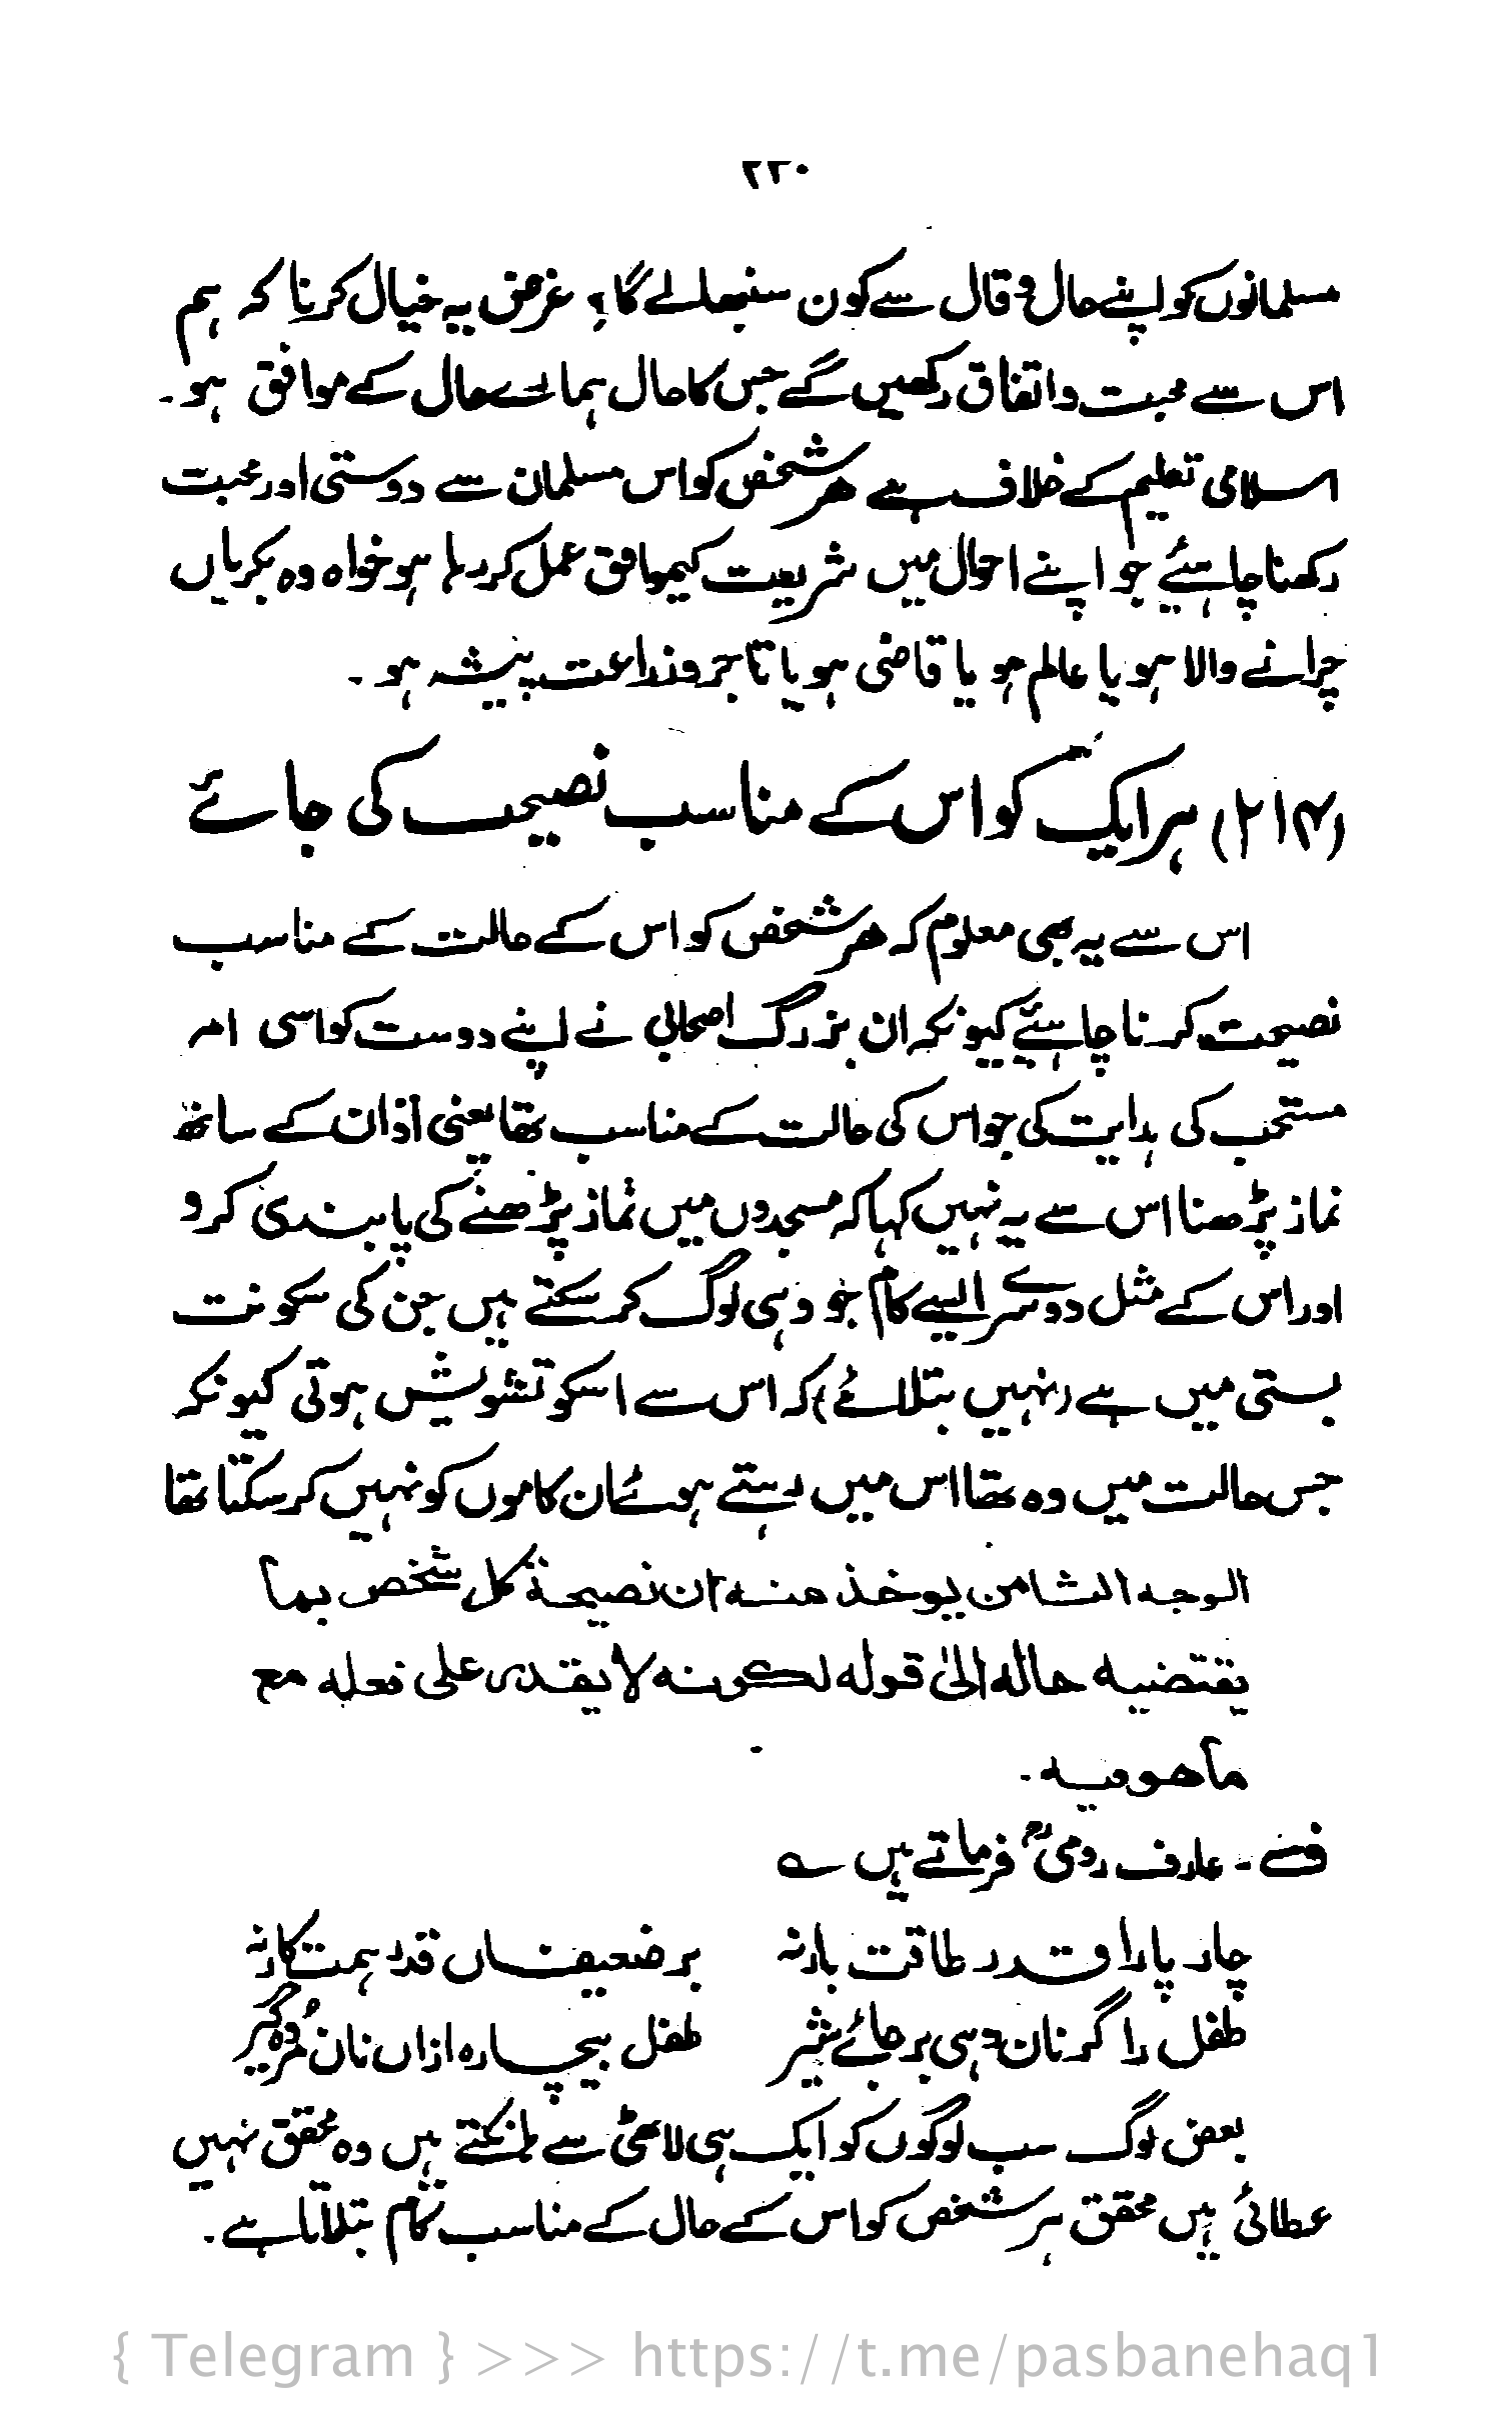 ۲۲۰
مسلمانوں کو اپنے حال و قال سے کون سنبھالے گا؟ غرض یہ خیال کرنا کہ ہم
اس سے محبت و اتفاق رکھیں گے جس کا حال ہمارے حال کے موافق ہو۔
اسلامی تعلیم کے خلاف ہے ھر شخص کو اس مسلمان سے دوستی اور محبت
رکھنا چاہئیے جو اپنے احوال میں شریعت کیموافق عمل کر رہا ہو خواہ وہ بکریاں
چرانے والا ہو یا عالم ہو یا قاضی ہو یا تاجر و زراعت پیشہ ہو۔
(۲۱۴) ہر ایک کو اس کے مناسب نصیحت کی جائے
اس سے یہ بھی معلوم کہ ھر شخص کو اس کے حالت کے مناسب
نصیحت کرنا چاہئیے کیونکہ ان بزرگ اصحابی نے اپنے دوست کو اسی امر
مستحب کی ہدایت کی جو اس کی حالت کے مناسب تھا یعنی آذان کے ساتھ
نماز پڑھنا اس سے یہ نہیں کہا کہ مسجدوں میں نماز پڑھنے کی پابندی کرو
اور اس کے مثل دوسرے ایسے کام جو وہی لوگ کر سکتے ہیں جن کی سکونت
بستی میں ہے (نہیں بتلائے) کہ اس سے اسکو تشویش ہوتی کیونکہ
جس حالت میں وہ تھا اس میں رہتے ہوئے ان کاموں کو نہیں کر سکتا تھا
الوجہ الثامن یوخذ منہ ان نصیحۃ کل شخص بما
یقتضیہ حالہ الیٰ قولہ لکونہ لا یقدر علی فعلہ مع
ما ھو فیہ۔
ف۔ عارف رومیؒ فرماتے ہیں ؎
چار پا را قدر طاقت بار نہ بر ضعیفاں قدر ہمت کار نہ
طفل را گر نان دہی بر جائے شیر طفل بیچارہ ازاں نان مُردہ گیر
بعض لوگ سب لوگوں کو ایک ہی لاٹھی سے ہانکتے ہیں وہ محقق نہیں
عطائی ہیں محقق ہر شخص کو اس کے حال کے مناسب کام بتلاتا ہے۔
{ Telegram } >>> https://t.me/pasbanehaq1